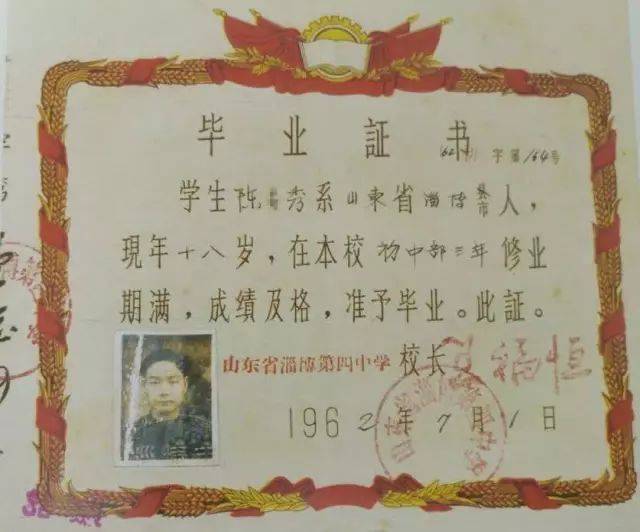 毕业証书
(62初)字第164号
学生陈秀系山東省淄博市人，
現年十八岁，在本校初中部三年修业
期满，成績及格，准予毕业。此証。
山东省淄博第四中学 校长 福恒
1962年7月1日